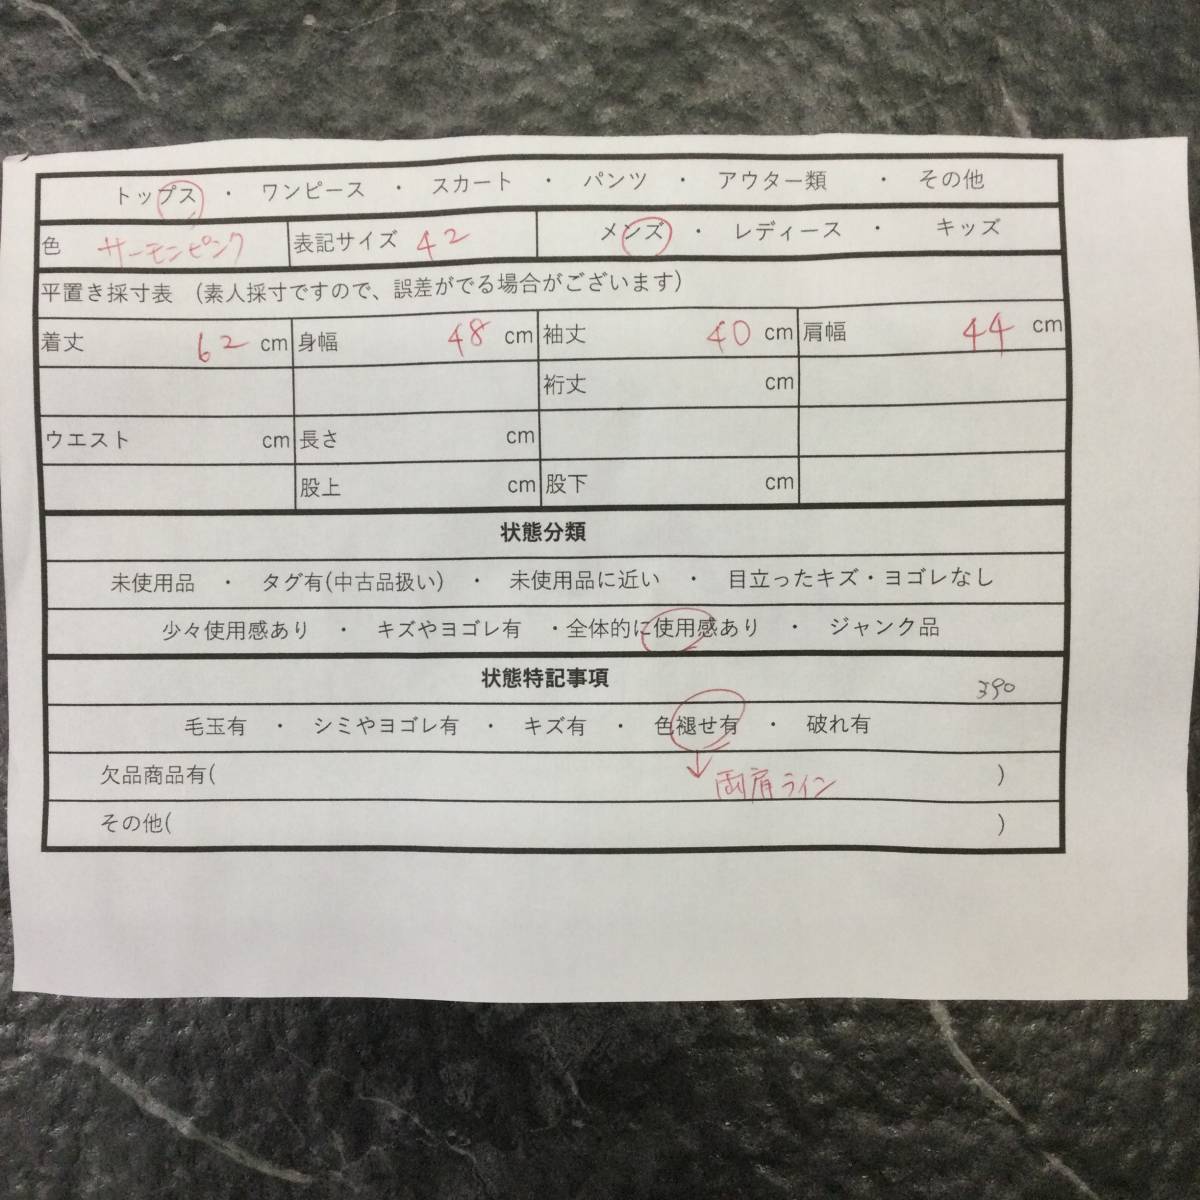 トップス ・ ワンピース ・ スカート ・ パンツ ・ アウター類 ・ その他
色 サーモンピンク 表記サイズ 42 メンズ ・ レディース ・ キッズ
平置き採寸表 (素人採寸ですので、誤差がでる場合がございます)
着丈 62 cm 身幅 48 cm 袖丈 40 cm 肩幅 44 cm
裄丈 cm
ウエスト cm 長さ cm
股上 cm 股下 cm
状態分類
未使用品 ・ タグ有(中古品扱い) ・ 未使用品に近い ・ 目立ったキズ・ヨゴレなし
少々使用感あり ・ キズやヨゴレ有 ・全体的に使用感あり ・ ジャンク品
状態特記事項 390
毛玉有 ・ シミやヨゴレ有 ・ キズ有 ・ 色褪せ有 ・ 破れ有
欠品商品有( ↓両肩ライン )
その他( )